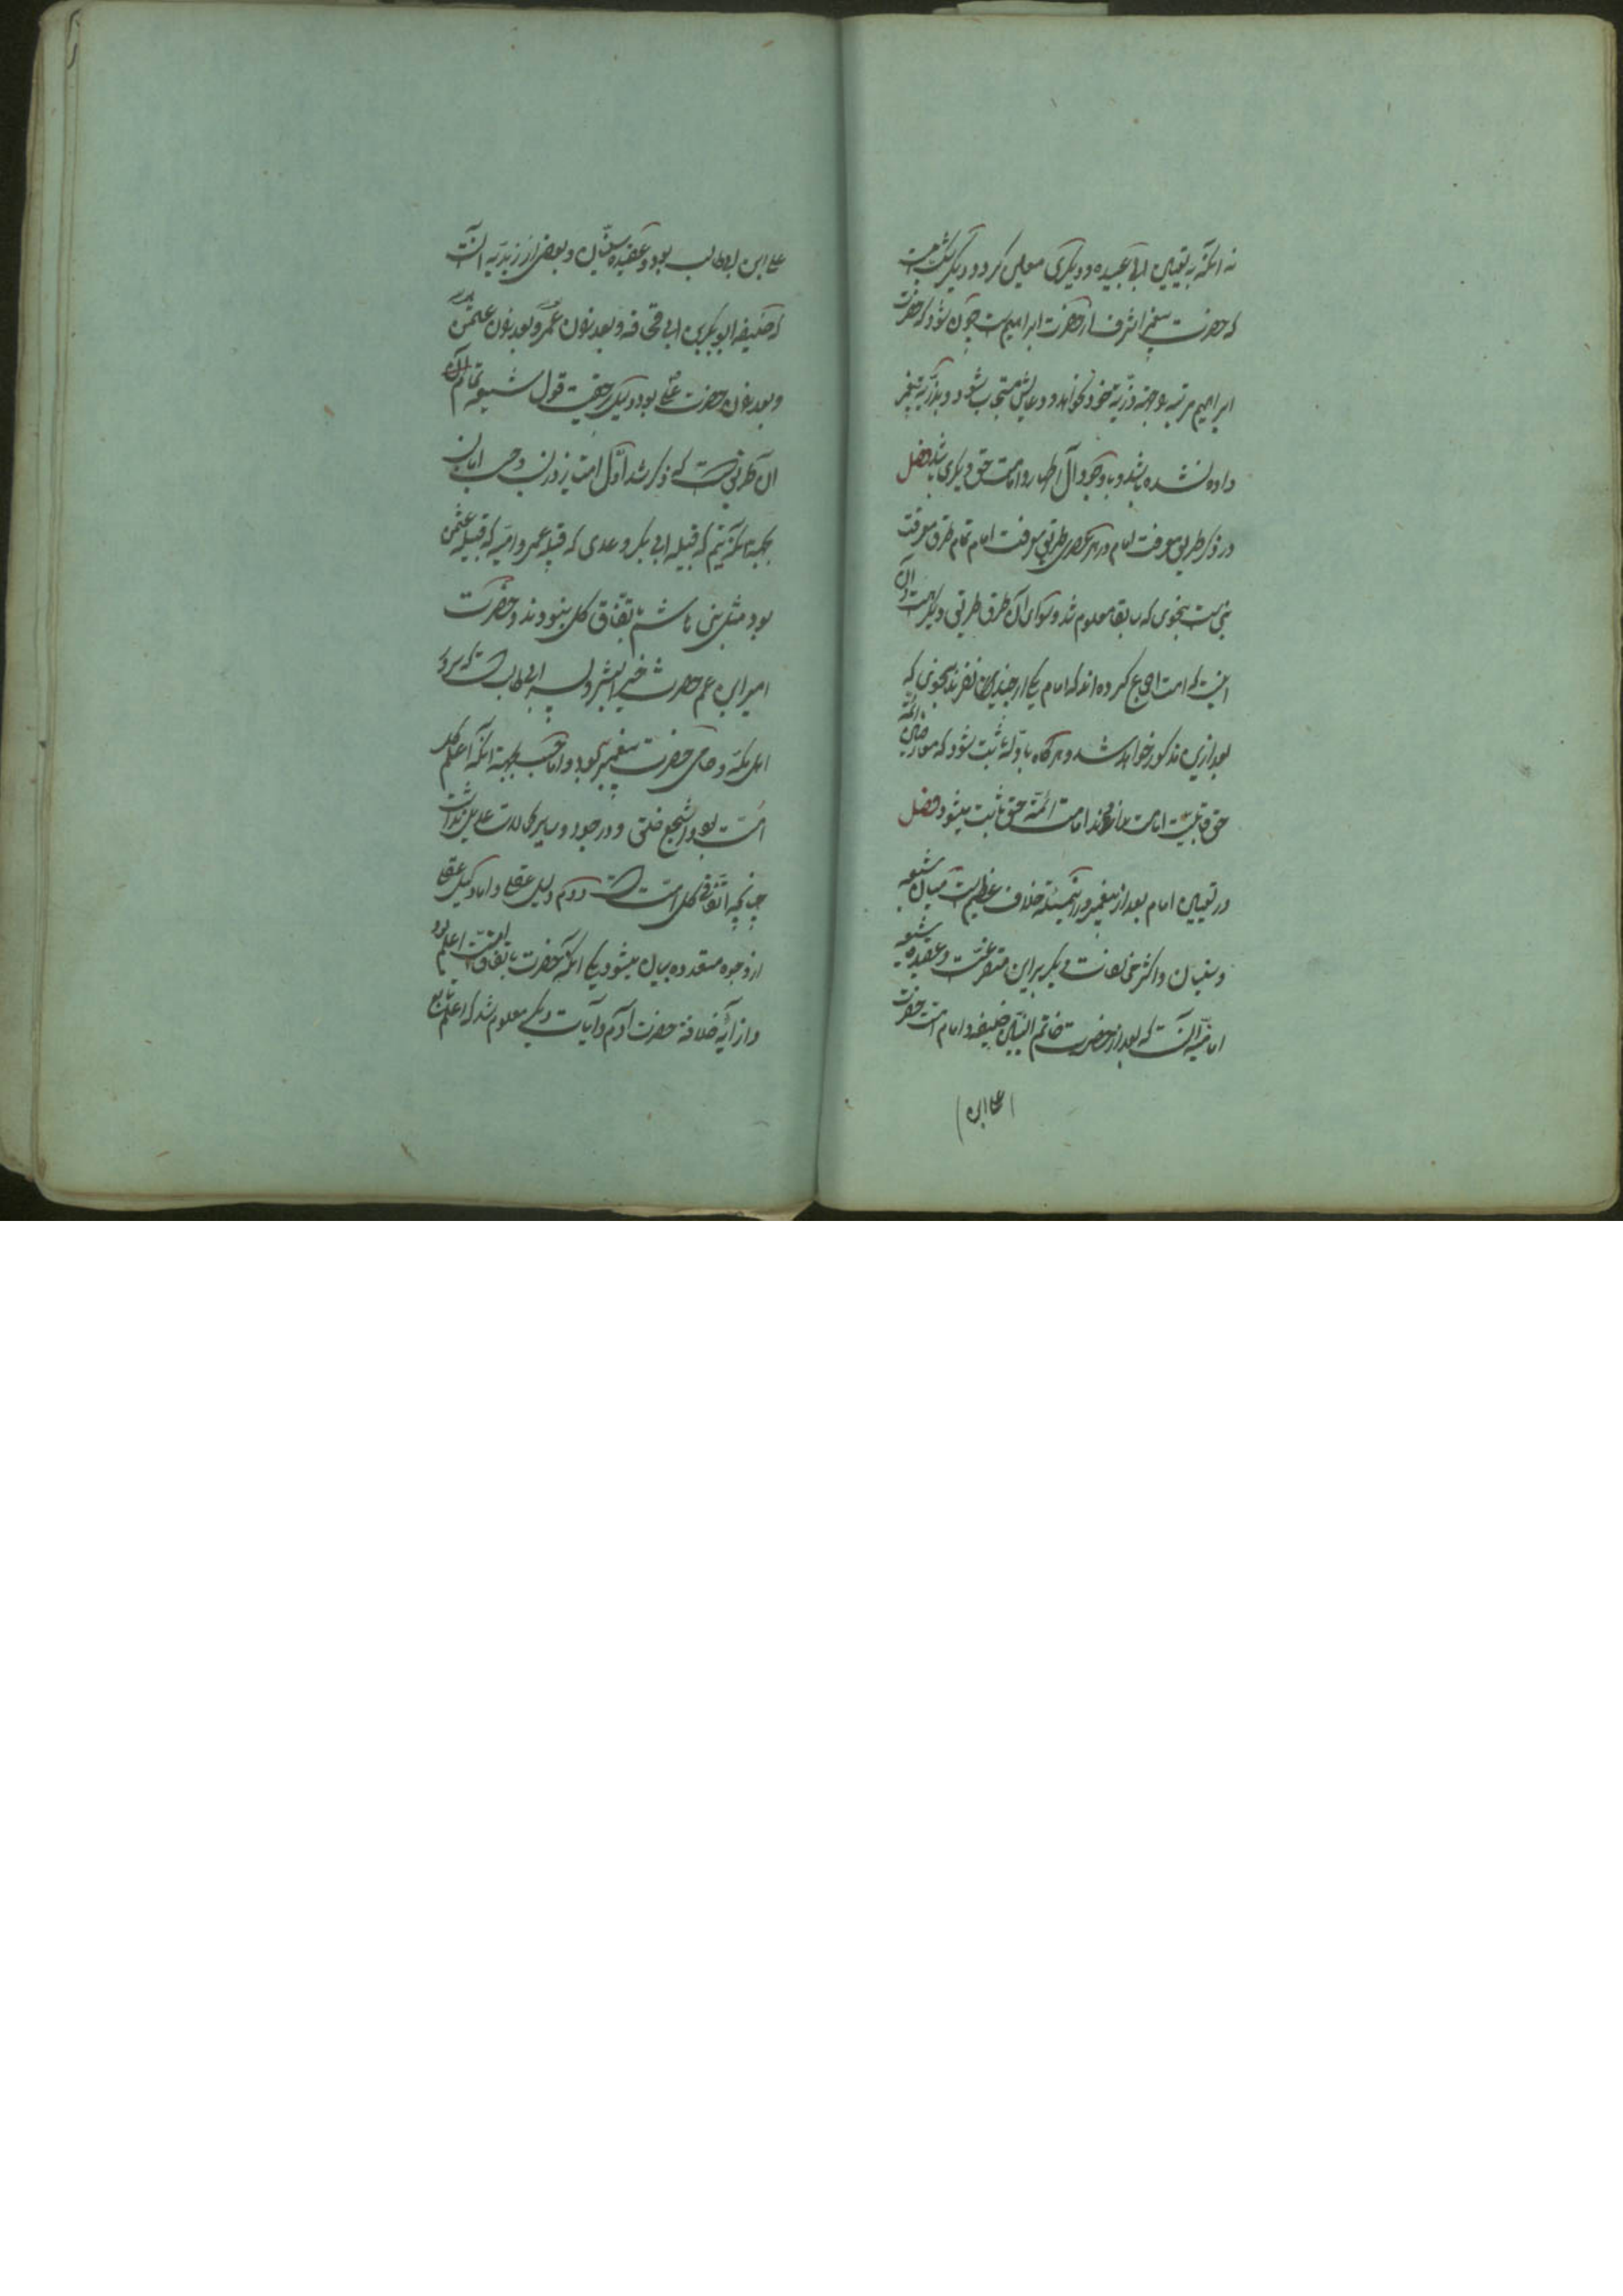 نه آنکه به تعیین ابی عبیده و دیگری معین کردد و دیگر
که حضرت پیغمبر اشرف از حضرت ابراهیم است چون شود که حضرت
ابراهیم مرتبه بوجهه ذرّیه خود بخواهد و دعایش مستجاب شود و بذرّیه پیغمبر
داده نشده باشد و با وجود آل اطهار و امامت حق دیگری باشد فصل
در ذکر طریق معرفت امام در هر عصری طریق معرفت امام تمام طرق معرفت
نبی است بنحوی که سابقا معلوم شد و سوای آن طرق طریقی دیگر هست و آن
اینست که امت اجماع کرده اند که امام یکی از چندین نفرند بنحوی که
بعد ازین مذکور خواهد شد و هر گاه بادّله ثابت شود که معارضین ائمّه
حق قابلیت امامت ندارند امامت ائمّه حق ثابت میشود فصل
در تعیین امام بعد از پیغمبر و در اینمسئله خلاف عظیم است میان شیعه
و سنیان و اکثر خلافات دیگر براین متفرعست و عقیده شیعه
امامیّه آنست که بعد از حضرت خاتم النبیّین خلیفه و امام امت حضرت
علی ابن
علی ابن ابی طالب بود و عقیده سنّیان و بعضی از زیدیّه آنست
که خلیفه ابو بکر بن ابی قحافه و بعد بزون عُمَر و بعد بزون عثمن
و بعد بزون حضرت علی بود و دلیل بر حقیت قول شیعه تمام
آن طرقیست که ذکر شد اوّل امتیاز در نسب و حسب اما نسب
بجهة آنکه تیم که قبیله ابی بکر و عدی که قبیله عمر و امیّه که قبیله عثمن
بود مثل بنی هاشم باتفّاق کل نبودند و حضرت
امیر ابن عم حضرت خیر البشر و پسر ابی طالب است که سرور
اهل مکّه و حامی حضرت پیغمبر بود و اما حسب بجهة آنکه اعلم کل
امّت بود و اشجع خلق و در جود و سایر کمالات عدیل نداشت
چنانچه اتّفاقی کل امت است دوّم دلیل عقلی و اما دلیل عقلی
از وجوه متعدده بیان میشود یکی آنکه آنحضرت باتفاق امّت اعلم بود
و از آیه خلافة حضرت آدم و آیات دیگر معلوم شد که اعلم